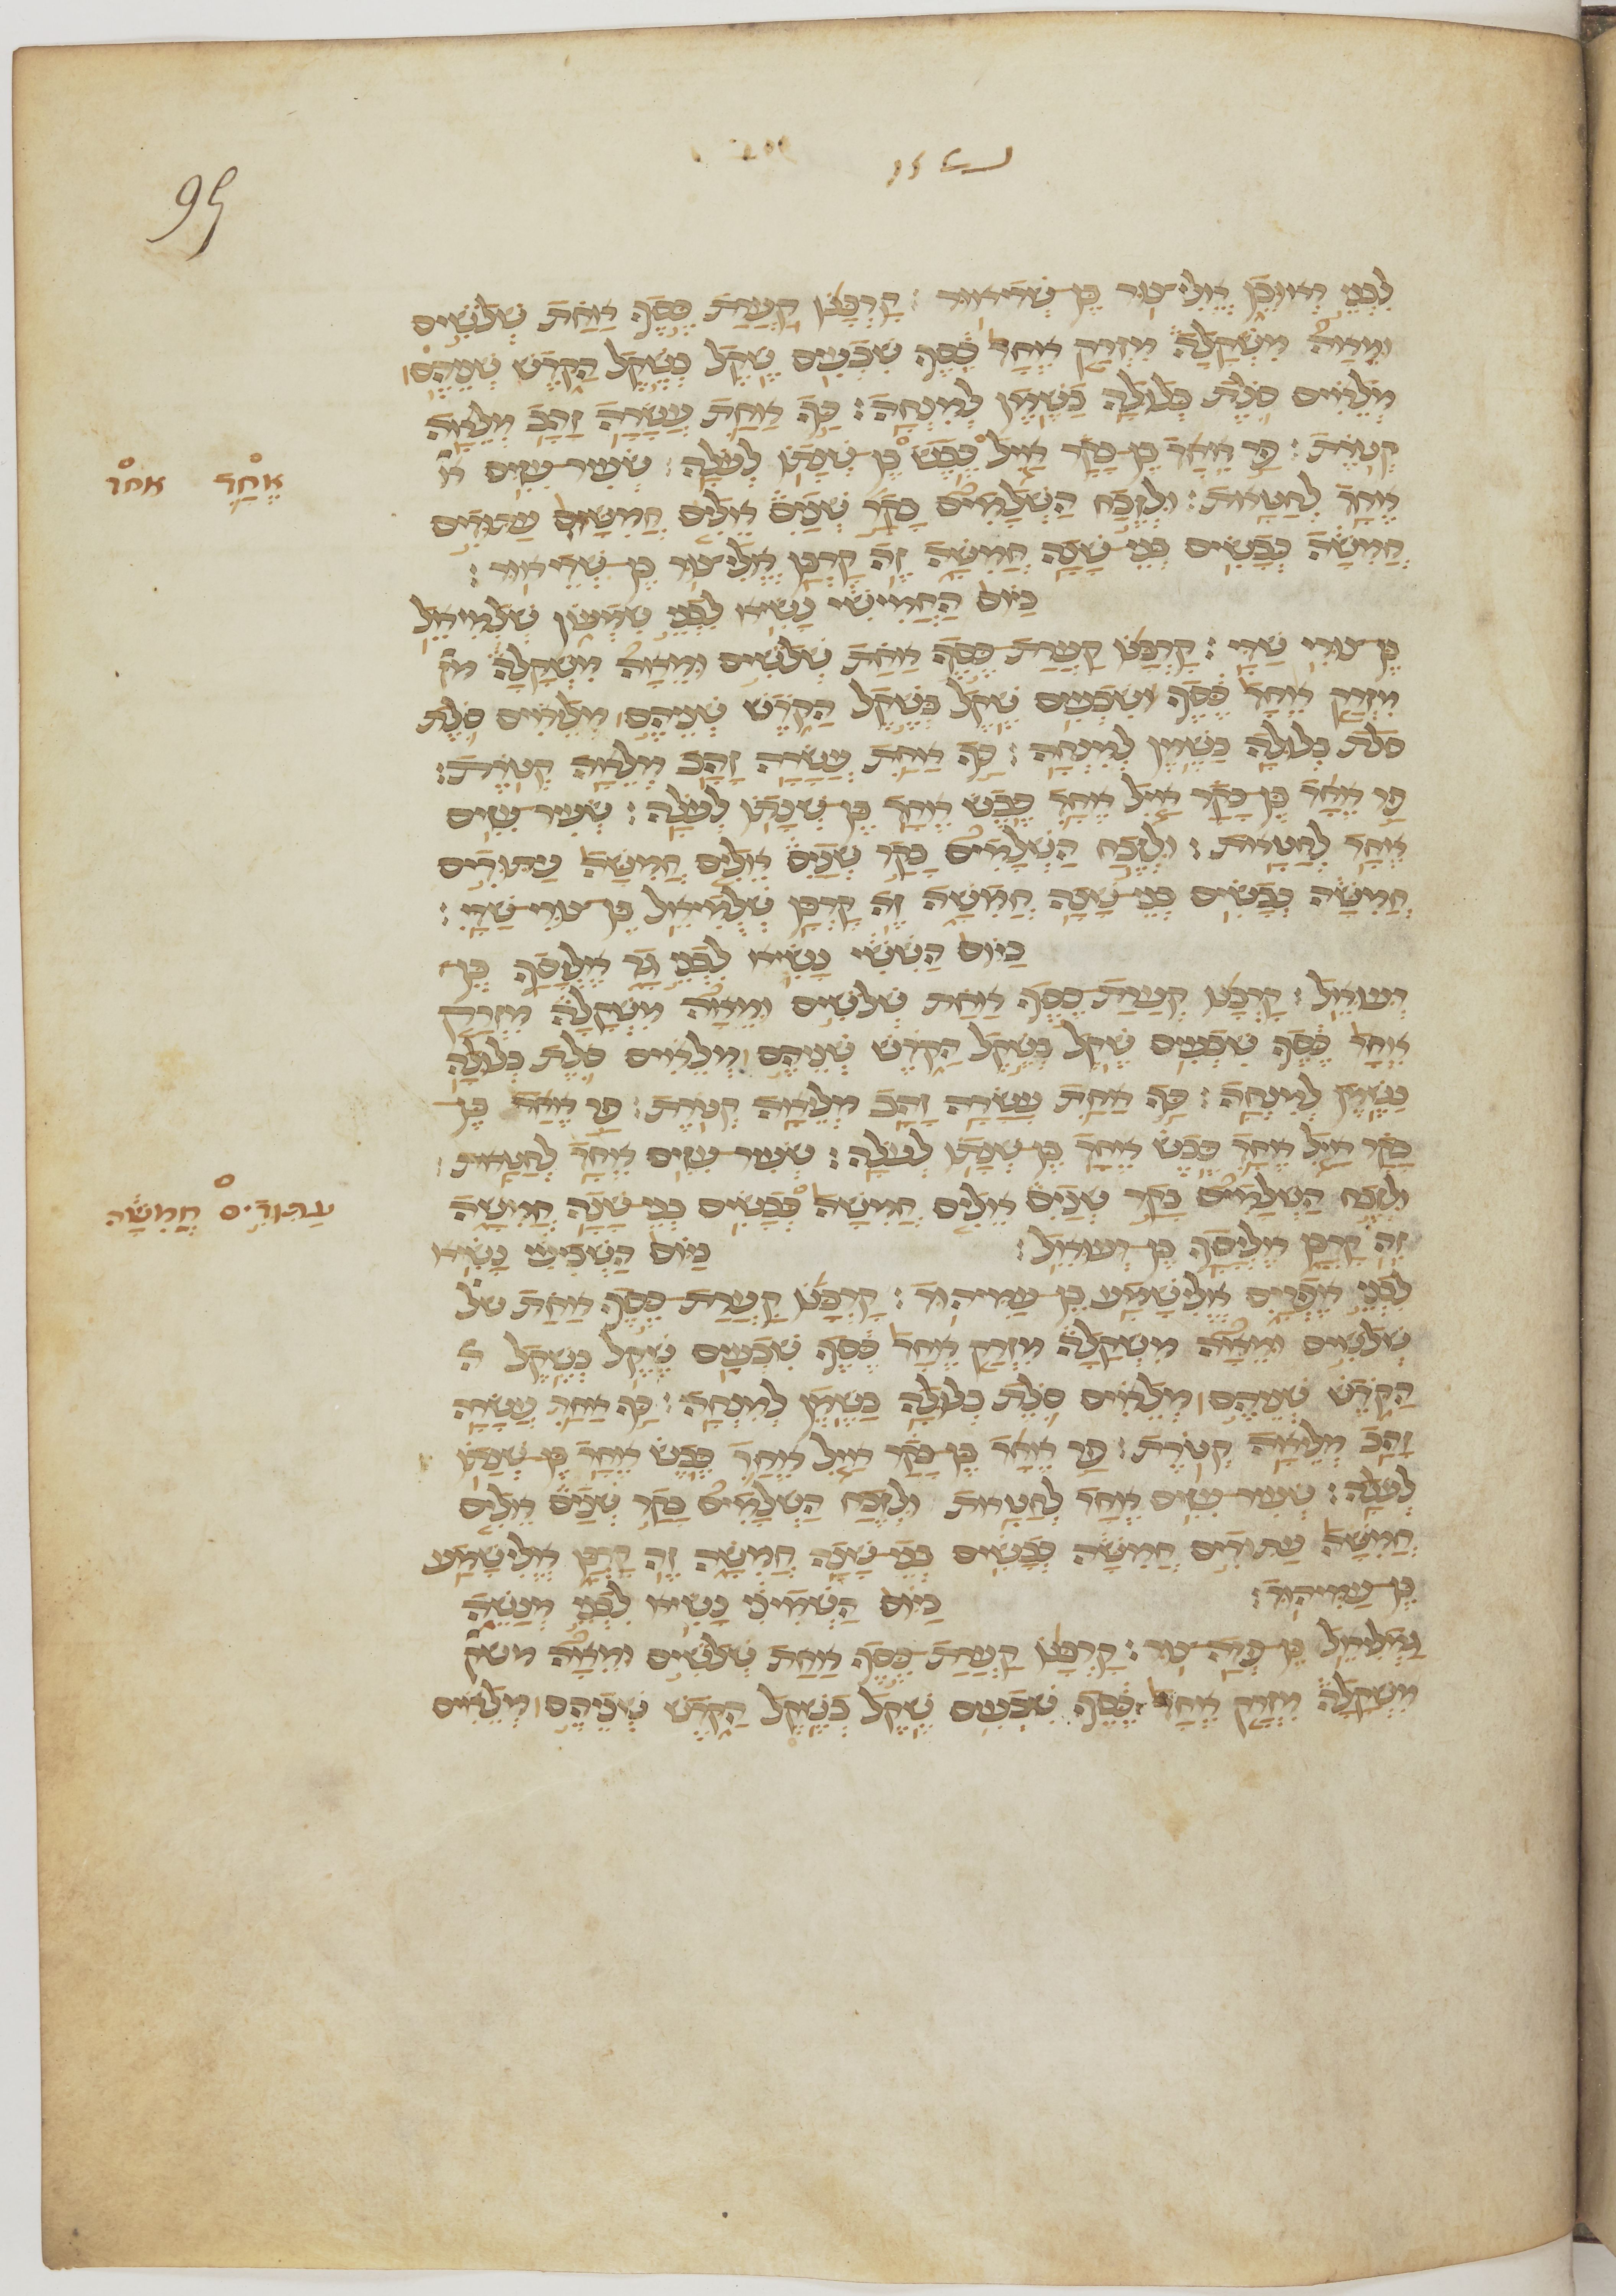 95
לבני ראובן אליצור בן־שדיאור: קרבנו קערת כסף אחת שלשים
ומאה משקלה מזרק אחד כסף שבעים שקל בשקל הקדש שניהם
מלאים סלת בלולה בשמן למנחה: כף אחת עשרה זהב מלאה
קטרת: פר אחד בן־בקר איל כבש בן־שנתו לעלה: שעיר־עזים א
אחד אחד
אחד לחטאת: ולזבח השלמים בקר שנים אילים חמשה עתודים
חמשה כבשים בני־שנה חמשה זה קרבן אליצור בן־שדיאור:
ביום החמישי נשיא לבני שמעון שלמיאל
בן־צורי שדי: קרבנו קערת־כסף אחת שלשים ומאה משקלה מז
מזרק אחד כסף שבעים שקל בשקל הקדש שניהם מלאים סלת
סלת בלולה בשמן למנחה: כף אחת עשרה זהב מלאה קטרת:
פר אחד בן־בקר איל אחד כבש אחד בן־שנתו לעלה: שעיר־עזים
אחד לחטאת: ולזבח השלמים בקר שנים אילם חמשה עתודים
חמשה כבשים בני־שנה חמשה זה קרבן שלמיאל בן־צורי־שדי:
ביום הששי נשיא לבני גד אליסף בן־
דעואל: קרבנו קערת־כסף אחת שלשים ומאה משקלה מזרק
אחד כסף שבעים שקל בשקל הקדש שניהם מלאים סלת בלולה
בשמן למנחה: כף אחת עשרה זהב מלאה קטרת: פר אחד בן־
בקר איל אחד כבש אחד בן־שנתו לעלה: שעיר־עזים אחד לחטאת:
ולזבח השלמים בקר שנים אילם חמשה כבשים בני־שנה חמשה
עתודים חמשה
זה קרבן אליסף בן־דעואל: ביום השביעי נשיא
לבני אפרים אלישמע בן־עמיהוד: קרבנו קערת־כסף אחת של
שלשים ומאה משקלה מזרק אחד כסף שבעים שקל בשקל ה
הקדש שניהם מלאים סלת בלולה בשמן למנחה: כף אחת עשרה
זהב מלאה קטרת: פר אחד בן־בקר איל אחד כבש אחד בן־שנתו
לעלה: שעיר־עזים אחד לחטאת ולזבח השלמים בקר שנים אילם
חמשה עתודים חמשה כבשים בני־שנה חמשה זה קרבן אלישמע
בן־עמיהוד: ביום השמיני נשיא לבני מנשה
גמליאל בן־פדה־צור: קרבנו קערת־כסף אחת שלשים ומאה משק
משקלה מזרק אחד כסף שבעים שקל בשקל הקדש שניהם מלאים